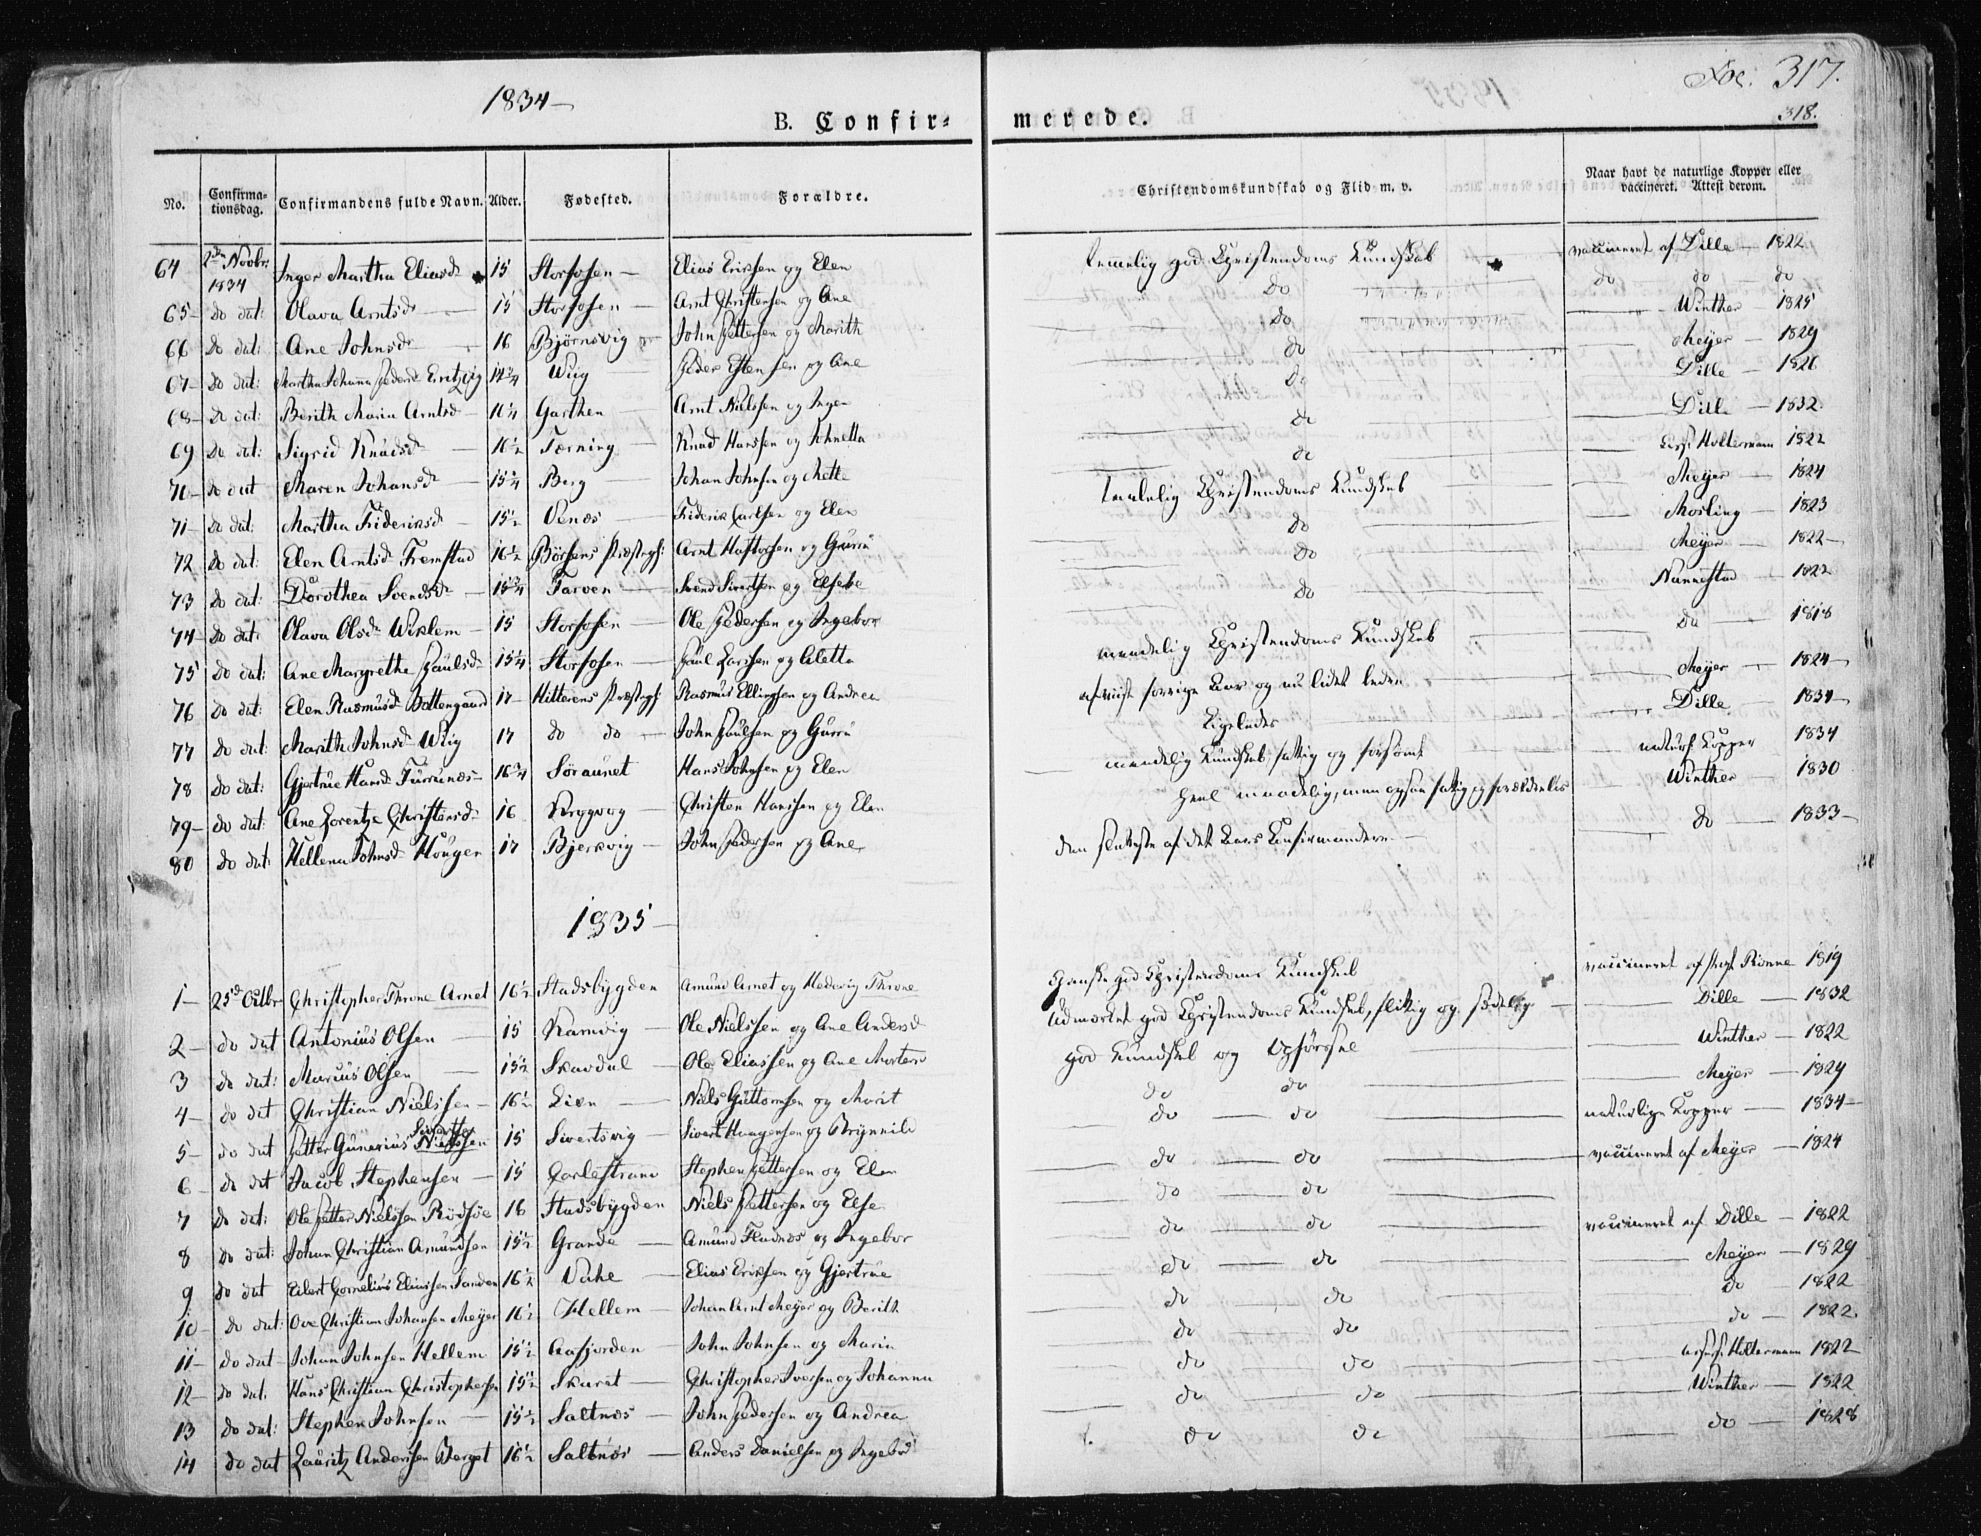 1834 —
Foe. 317.
318.
B. Confir- merede.
No. Confirma-tionsdag. Confirmandens fulde Navn. Alder. Fødested. Forældre. Christendomskundskab og Flid m. v. Naar havt de naturlige Kopper eller vaccineret. Attest derom.
64 2den Novbr: 1834 Inger Martha Eliasd: 15 Storfosen — Elias Eriksen og Elen temelig god Christendoms Kundskab vaccineret af Dille — 1822
65 — do dat: Olava Arntsd: 15 Storfosen — Arnt Christensen og Ane do do do do
66 do dat: Ane Johnsd: 16 Bjørnsvig John Pettersen og Marith do Winther — 1825
67 — do dat: Martha Johana Pedersd: 14¾ Wiig Peder Estensen og Ane do Meyer — 1829
68 — do dat: Berith Maria Arntsd: 16¼ Garthen Arnt Nielssen og Inger do Dille — 1826
69 do dat: Sigrid Knudsd: 16½ Tørning Knud Hanssen og Johnetta do Dille — 1832
70 — do dat Maren Johansd: 15¾ Berg Johan Johnsen og Mette do Holtermann 1822
71 — do dat: Martha Frideriksd: 15½ Venæs Friderik Carlsen og Elen temelig Christendoms Kundskab Meyer — 1824
72 do dat: Elen Arntsd: Fremstad 16½ Børsens Præstegj: Arnt Haftorsen og Gurru do Morling — 1823
73 do dat: Dorothea Svendsd: 15¾ Farven Svend Sivertsen og Elsebe do Meyer — 1822 —
74 — do dat: Olava Olsd: Wiklem — 15 Storfosen — Ole Pedersen og Ingebor do Nannestad — 1822
75 do dat: Ane Margrethe Paulsd: 15¼ Storfosen — Paul Larssen og Aletta maadelig Christendoms Kundskab do 1818
76 do dat: Elen Rasmusd: Battengaard 17 — Hitterens Præstegj: Rasmus Ellingsen og Andrea afviist forrige Aar og nu lidet bedre Meyer — 1824 —
77 do dat: Marith Johnsd: Wiig 17 do do — John Paulsen og Gurru Ligeledes Dille 1834 —
78 do dat: Gjertrue Hansd: Furrunæs — 16¾ Søraunet Hans Johnsen og Elen maadelig Kundskab, fattig og forsømt naturl. Kopper 1834
79 — do dat: Ane Lorentze Christensd: 16 Christen Hanssen og Elen heel maadelig, men ogsaa fattig og forældreløs Winther — 1830
80 do dat: Hellena Johnsd: Houger 17 Bjerkvig — John Pedersen og Ane den sletteste af det Aars Confirmandere — do — 1833 —
1835 —
1 — 25de Octbr Christopher Throne Arnet 16½ Stadsbygden Amund Arnet og Hedevig Throne Ganske god Christendoms Kundskab vaccineret af Præst Rønne 1819
2 — do dat Antonius Olsen 15 Ramvig — Ole Nielssen og Ane Andersd: Udmærket god Christendoms Kundskab, flittig og sædelig Dille — 1832
3 do dat: Marcus Olsen 15½ Skavdal — Ole Eliassen og Ane Mortensd: god Kundskab og Opførsel Winther — 1822
4 — do dat Christian Nielssen — 16½ Lien — Niels Guttormsen og Marit do do Meyer — 1829
5 — do dat Petter Gunerius Nielssen Sivertsen 15 Sivertsvig — Sivert Haagensen og Brynnild do — do naturlige Kopper — 1834 —
6 — do dat Jacob Stephensen — 15 Carlestrand Stephen Pettersen og Elen do — do vaccineret af Meyer — 1824
7 do dat: Ole Petter Nielssen Rødsøe 16 Stadsbygden Niels Pettersen og Else do do
8 do dat: Johan Christian Amundsen 15½ Grande — Amund Fladnæs og Ingebor do — do vaccineret af Dille — 1822
9 do dat Eilert Cornelius Eliassen Sanden 16½ Vahe — Elias Eriksen og Gjertrue do — do Meyer — 1829
10 — do dat: Ove Christian Johansen Meyer 16½ Hellem — Johan Arnt Meyer og Berith do do do — 1822
11 — do dat — Johan Johnsen Hellem 15½ Aafjorden — John Johnsen og Maria do do do — 1822.
12 — do dat. Hans Christian Christophersen 15½ Skaret — Christopher Iversen og Johanna do do Holtermann 1822 —
13 do dat: Stephen Johnsen — 15½ Saltnæs — John Pedersen og Andrea do do Winther — 1822
14 do dat Lauritz Anderssen Berget 16½ Saltnæs — Anders Danielsen og Ingebor do do do — 1828